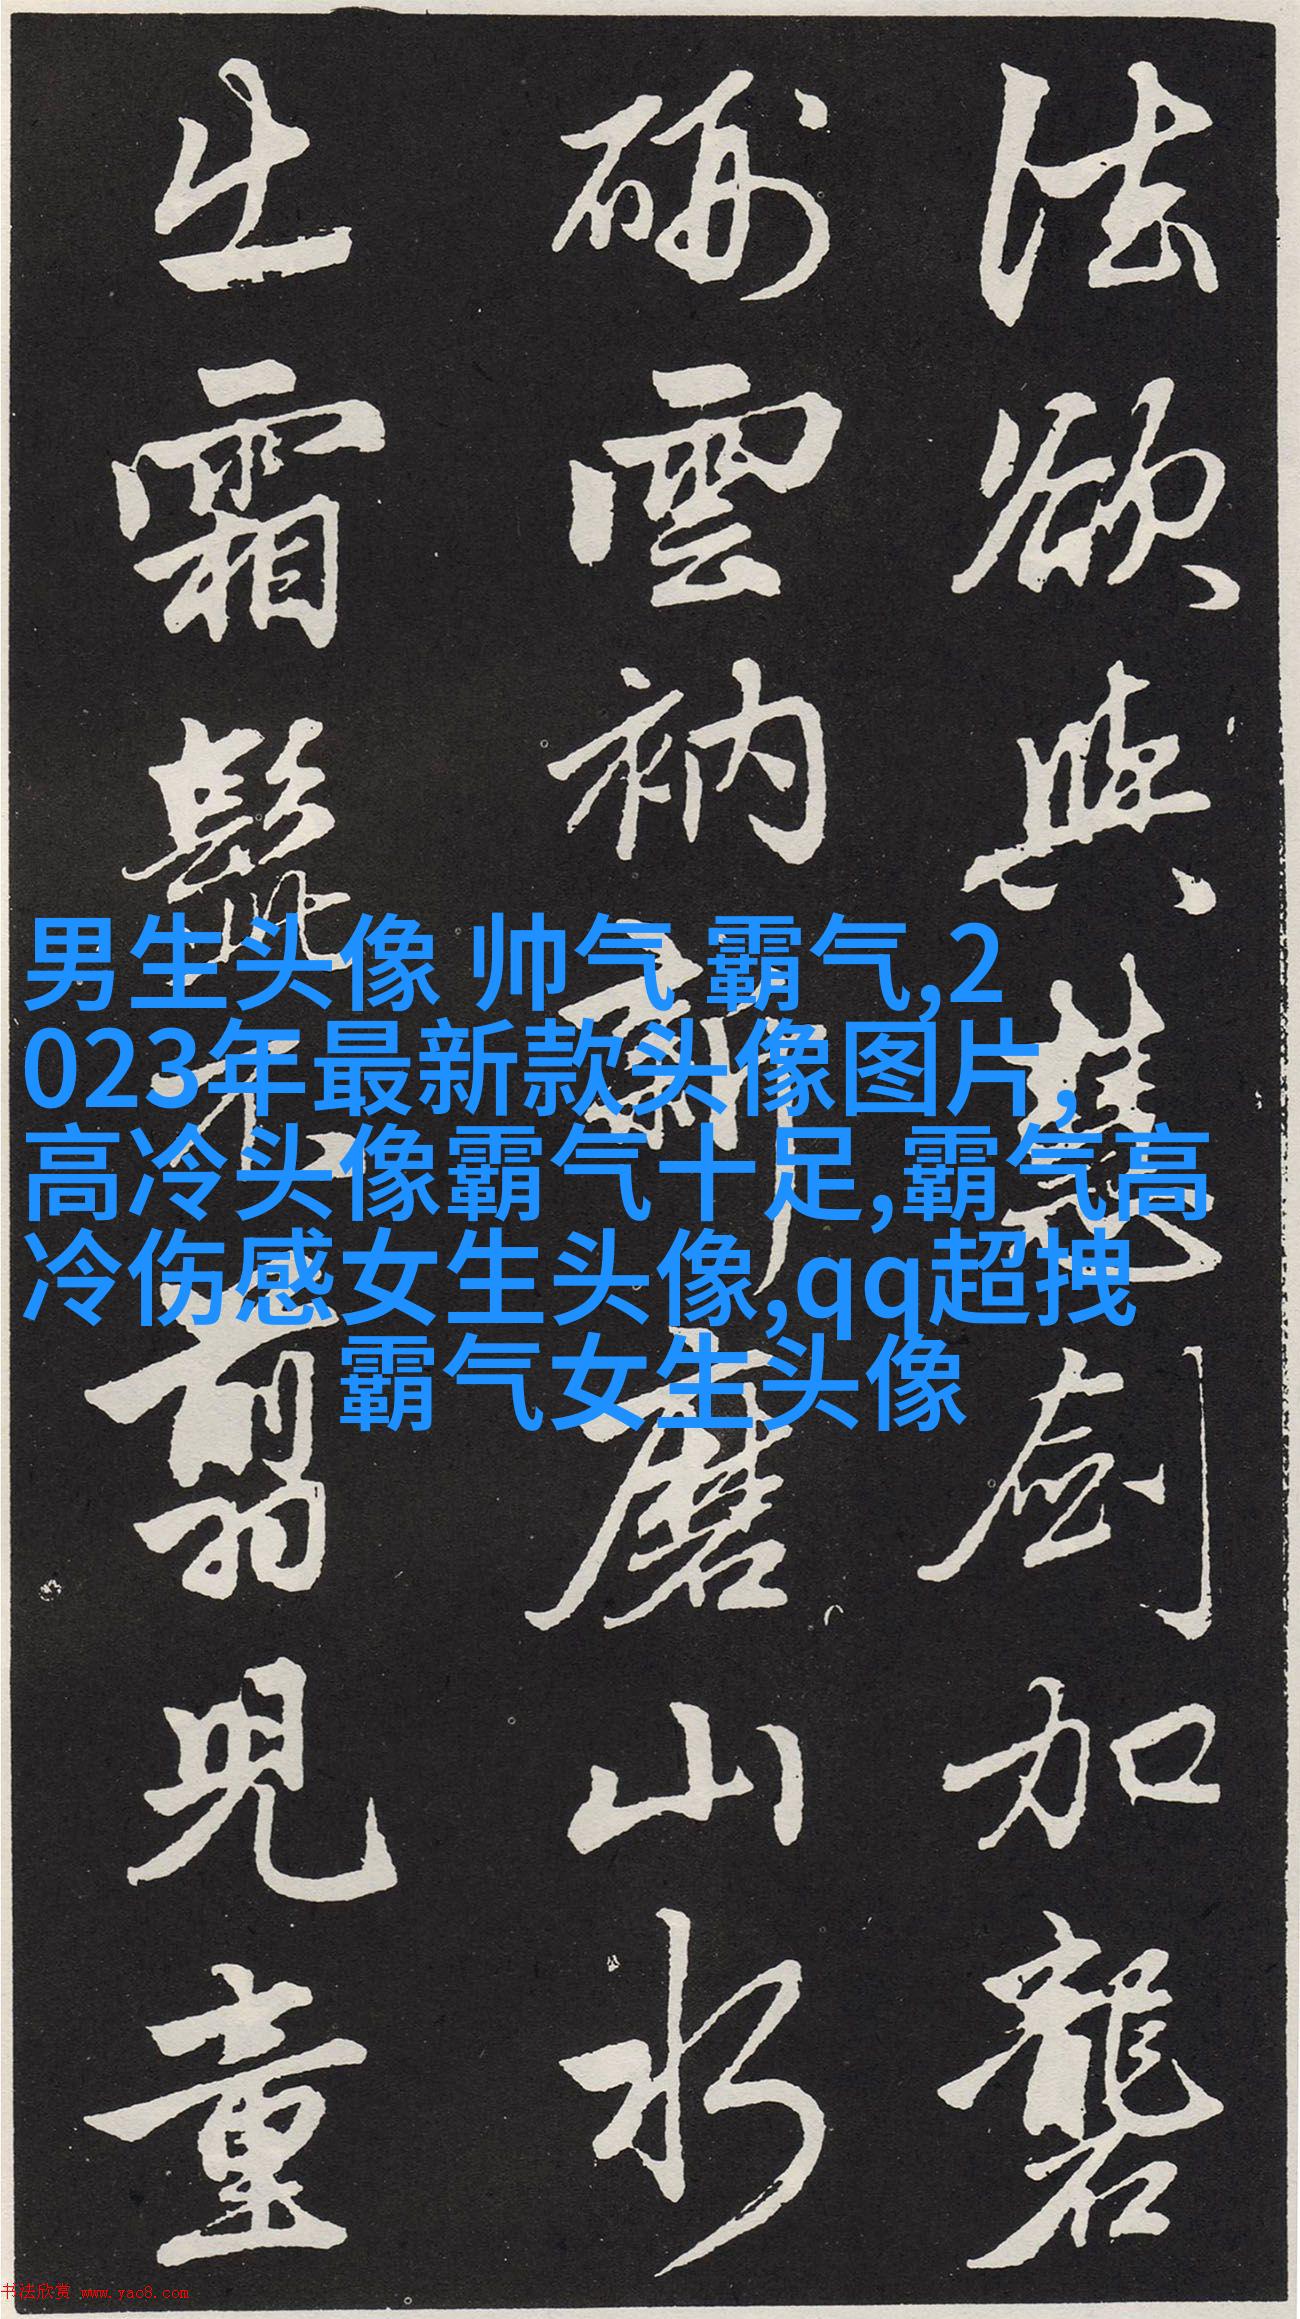 法欲與慧劍加礱
硎雲衲新磨山水
出霜髭不翦兒童
男生头像 帅气 霸气,2
023年最新款头像图片,
高冷头像霸气十足,霸气高
冷伤感女生头像,qq超拽
霸气女生头像
书法欣赏 www.yac8.com